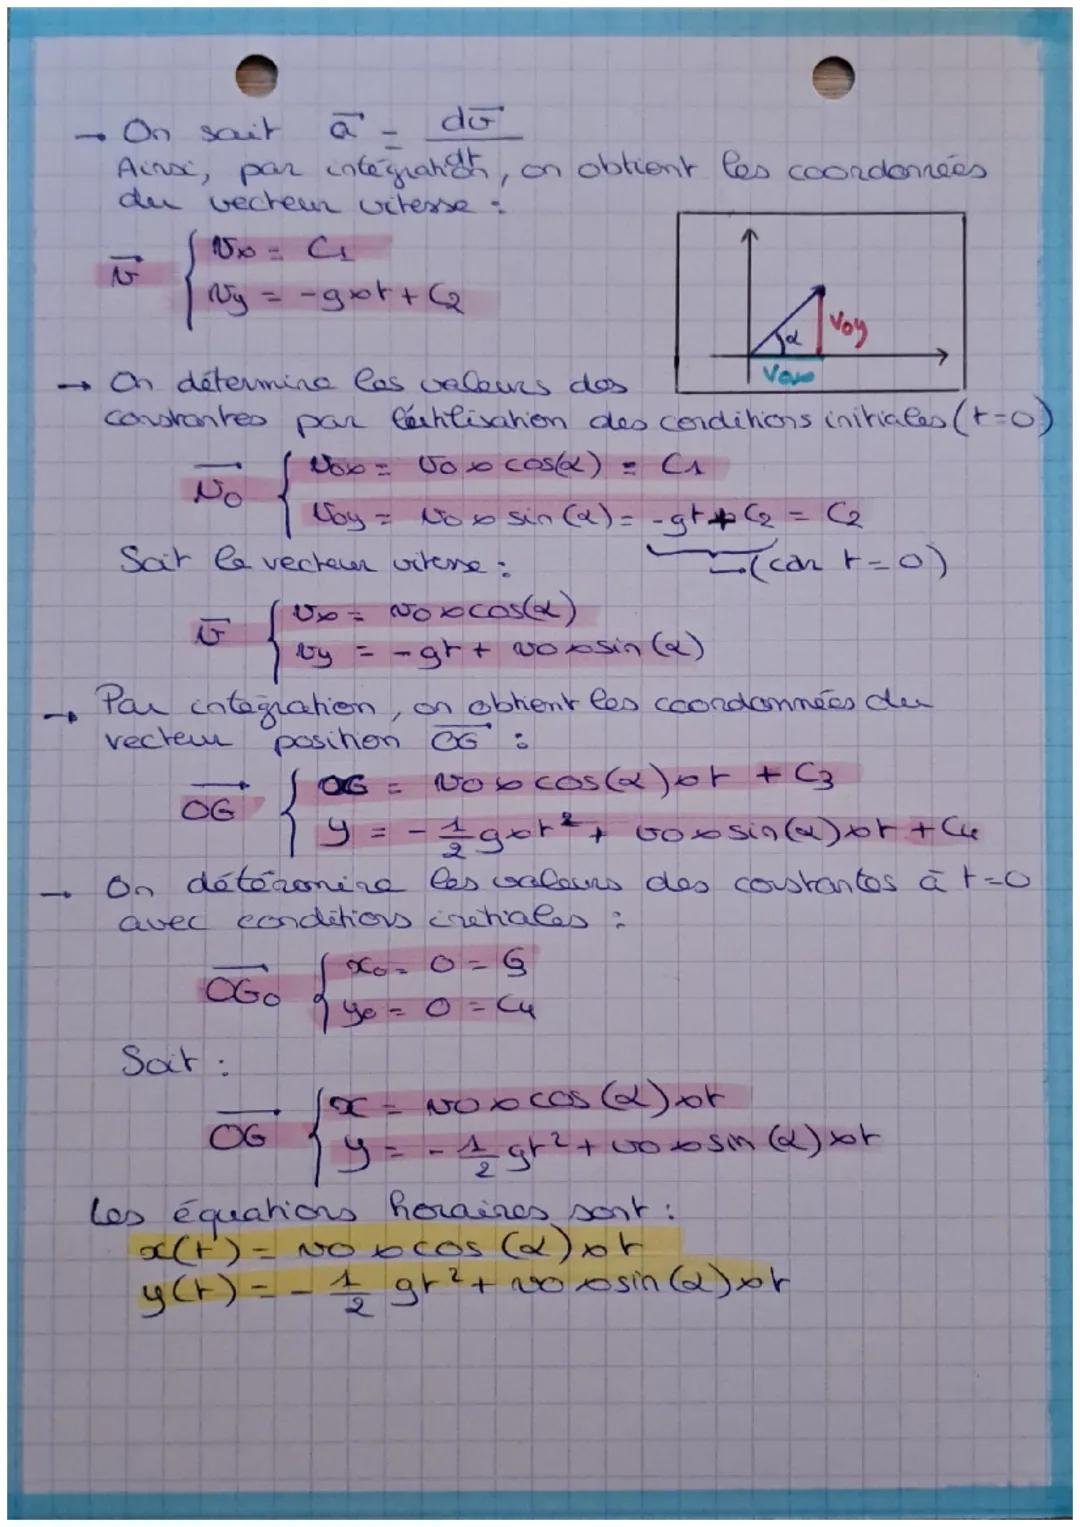 → On sait a⃗ = dv⃗/dt
Ainsi, par intégration, on obtient les coordonnées
du vecteur vitesse :
v⃗ { Vx = C1
Vy = -g×t + C2
V0y
α
V0x
→ On détermine les valeurs des
constantes par l'utilisation des conditions initiales (t=0)
V0⃗ { V0x = V0 × cos(α) = C1
V0y = V0 × sin(α) = -gt + C2 = C2
(car t=0)
Soit le vecteur vitesse :
v⃗ { Vx = V0 × cos(α)
Vy = -gt + V0 × sin(α)
→ Par intégration, on obtient les coordonnées du
vecteur position OG⃗ :
OG⃗ { OG = V0 × cos(α) × t + C3
y = -1/2 g×t² + V0 × sin(α) × t + C4
→ On détermine les valeurs des constantes à t=0
avec conditions initiales :
OG0⃗ { x0 = 0 = C3
y0 = 0 = C4
Soit :
OG⃗ { x = V0 × cos(α) × t
y = -1/2 gt² + V0 × sin(α) × t
Les équations horaires sont :
x(t) = V0 × cos(α) × t
y(t) = -1/2 gt² + V0 × sin(α) × t